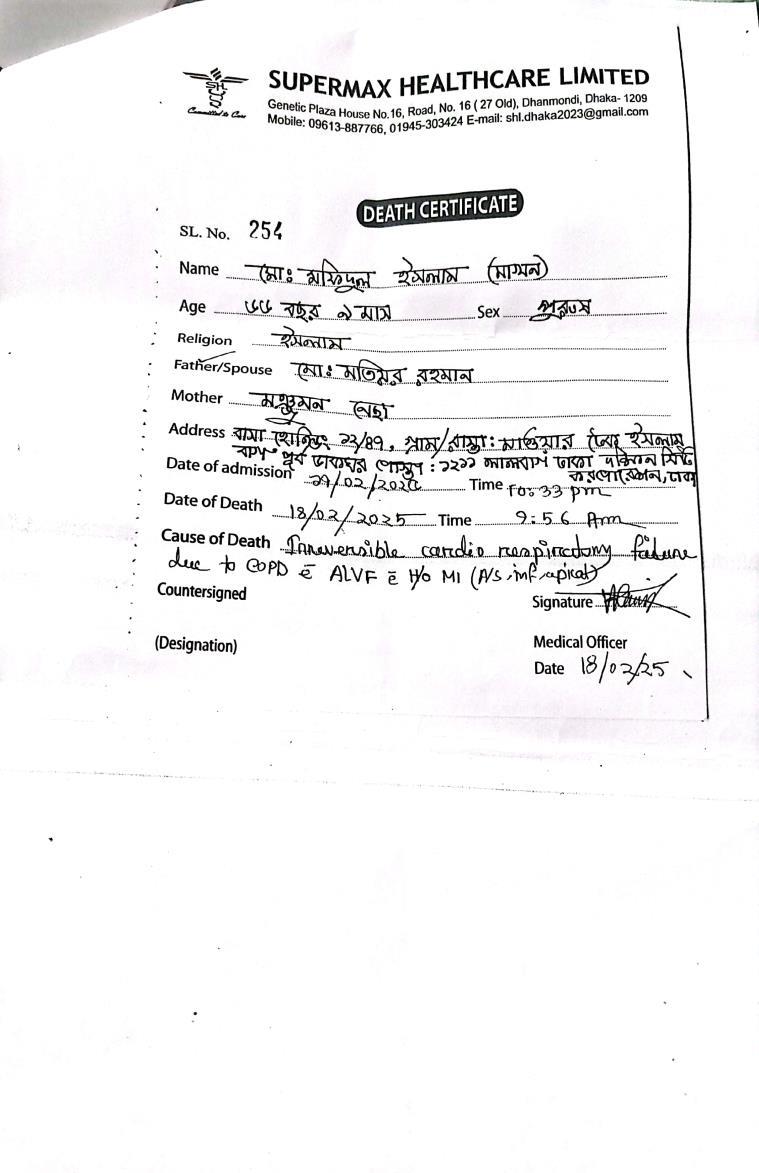 SUPERMAX HEALTHCARE LIMITED
Genetic Plaza House No.16, Road, No. 16 ( 27 Old), Dhanmondi, Dhaka- 1209
Committed to Care
Mobile: 09613-887766, 01945-303424 E-mail: shl.dhaka2023@gmail.com
DEATH CERTIFICATE
SL. No. 254
Name মোঃ মফিদুল ইসলাম
Age ৬৬ বছর ৯ মাস Sex পুরুষ
Religion ইসলাম
Father/Spouse মোঃ মতিয়র রহমান
Mother নেছা
Address বাসা হোল্ডিং ১২/৪৭, গ্রাম/রাস্তা: ইসলাম
পূর্ব ডাকঘর পোস্তা : ১২১১ লালবাগ ঢাকা দক্ষিন সিটি
করপোরেশন, ঢাকা
Date of admission Time 10:33 pm
Date of Death 18/02/2025 Time 9:56 Am
Cause of Death Irreversible cardio respiratory failure
due to COPD c̄ ALVF c̄ H/o MI (A/S, inf, apical)
Countersigned
Signature
(Designation)
Medical Officer
Date 18/02/25